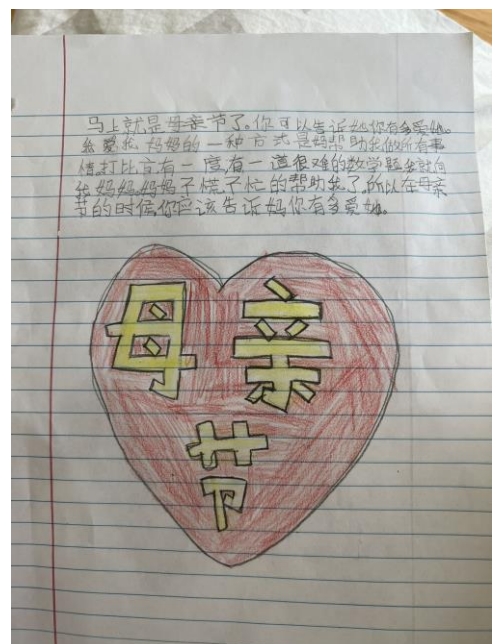 马上就是母亲节了。你可以告诉她你有多爱她。
我爱我妈妈的一种方式是妈帮助我做所有事
情打比方有一度有一道很难的数学题我就问
我妈妈妈妈子慌子忙的帮助我了所以在母亲
节的时候你应该告诉妈你有多爱她。
母亲
节